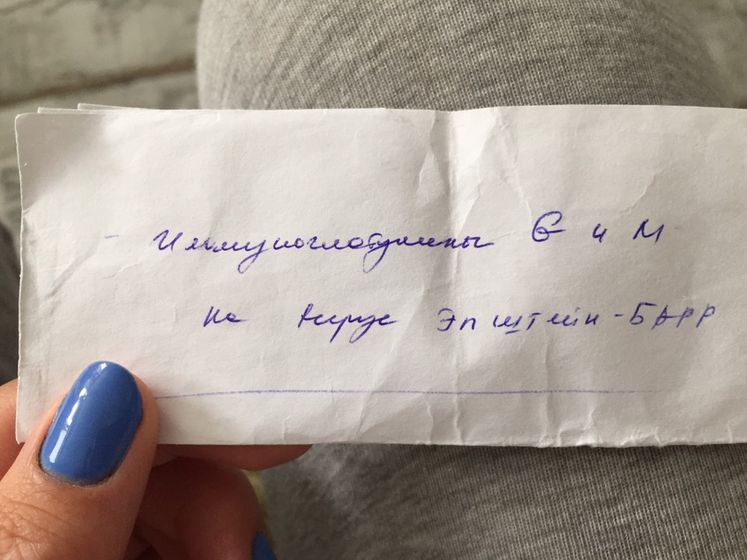 - Иммуноглобулины G и M
на вирус Эпштейн-БАРР